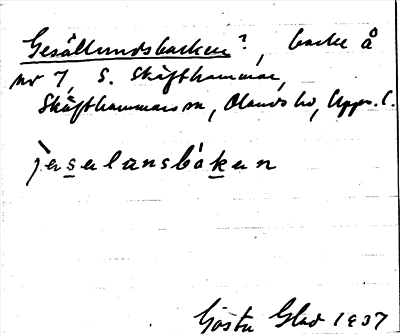 Gesällundsbacken?, backe å
nr 7, S. Skäfthammar,
Skäfthammars sn, Olands hd, Upps. l.
jeselansbaken
Gösta Glad 1937